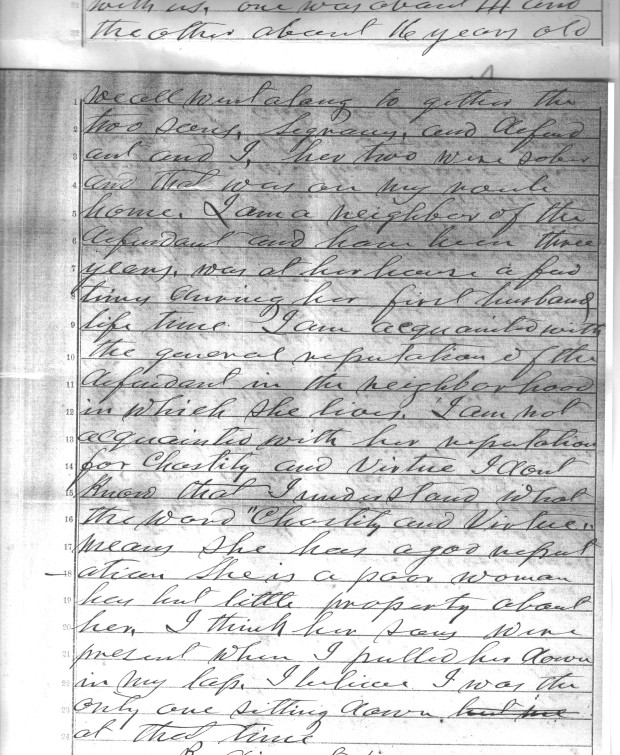 with us, one was about 14 and
the other about 16 years old
1 we all went along to gether the
2 two sons, Segraves, and defend
3 ant and I, her two were sober
4 and that was on my route
5 home. I am a neighbor of the
6 defendant and have been three
7 years. was at her house a few
8 times during her first husband
9 life time I am acquainted with
10 the general reputation of the
11 defendant in the neighborhood
12 in which she lives. I am not
13 acquainted with her reputation
14 for Chastity and Virtue I dont
15 Know that I understand what
16 the word "Chastity and Virtue"
17 means she has a good reput
18 ation She is a poor woman
19 has but little property about
20 her. I think her sons were
21 present when I pulled her down
22 in my lap. I believe I was the
23 only one sitting down. but me
24 at that time